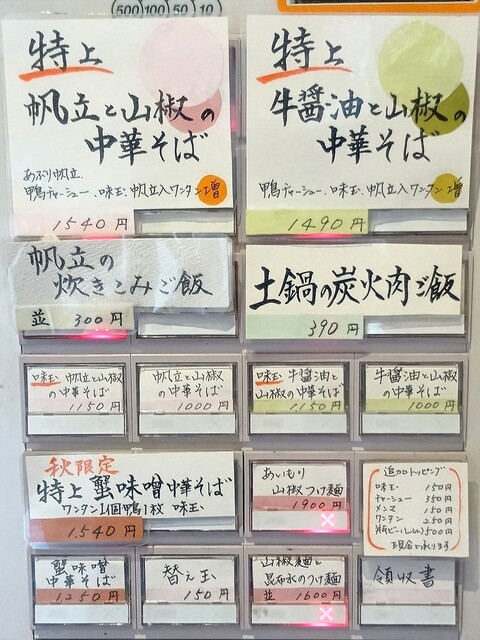 500 100 50 10
特上
帆立と山椒の
中華そば
あぶり帆立、
鴨チャーシュー、味玉、帆立入ワンタン 増
1540円
特上
牛醤油と山椒の
中華そば
鴨チャーシュー、味玉、帆立入ワンタン 増
1490円
帆立の
炊きこみご飯
並 300円
土鍋の炭火肉ご飯
390円
味玉 帆立と山椒
の中華そば
1150円
帆立と山椒
の中華そば
1000円
味玉 牛醤油と
山椒の中華そば
1150円
牛醤油と山椒
の中華そば
1000円
秋限定
特上 蟹味噌中華そば
ワンタン1個 鴨1枚 味玉
1,540円
あいもり
山椒つけ麺
1900円
追加トッピング
味玉 150円
チャーシュー 350円
メンマ 150円
ワンタン 250円
500円
現金で承ります
蟹味噌
中華そば
1,250円
替え玉
150円
山椒麺と
昆布水のつけ麺
並 1600円
領収書